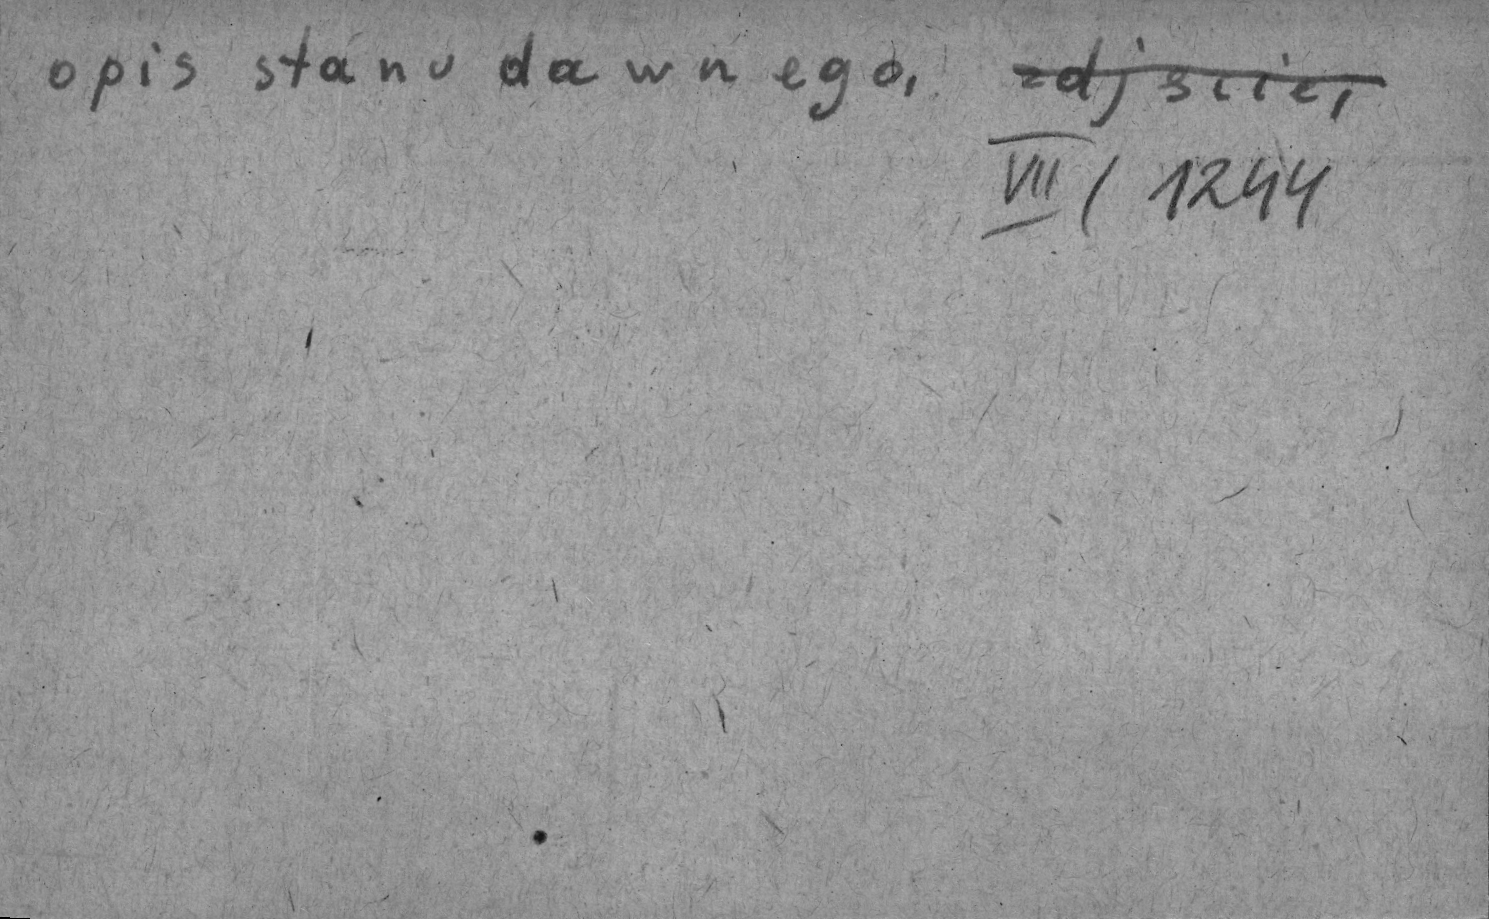 opis stanu dawnego,
VII / 1244